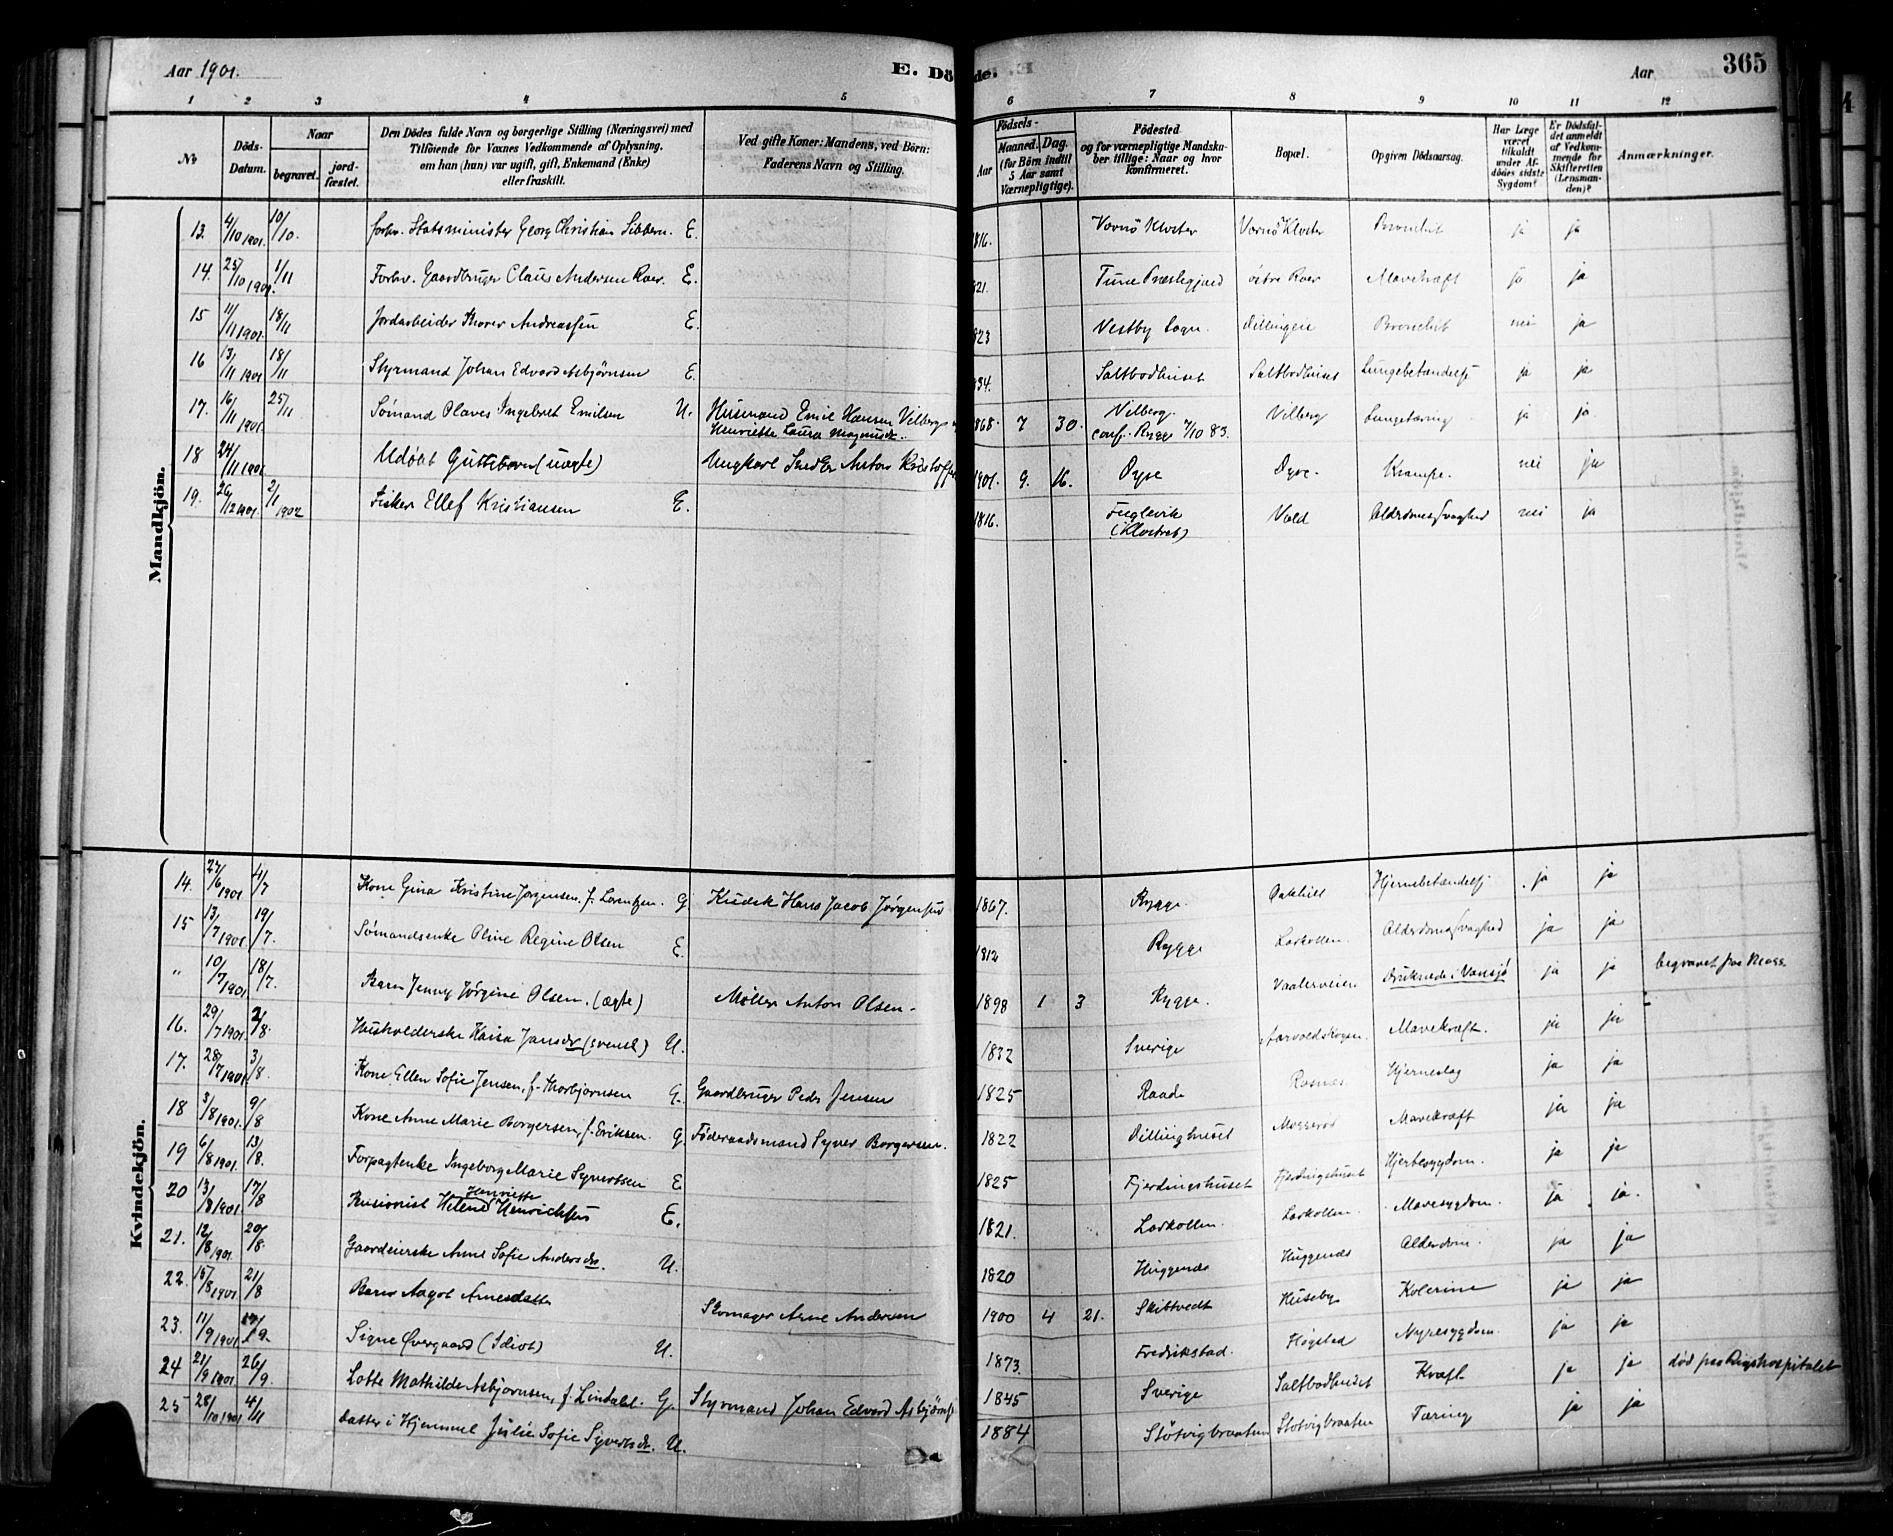 Aar 1901.
E. Dö
de.
Aar
365
1 2 3 4 5 6 7 8 9 10 11 12
No
Döds-Datum.
Naar
begravet.
jord-fæstet.
Den Dödes fulde Navn og borgerlige Stilling (Næringsvei) med
Tilföiende for Voxnes Vedkommende af Oplysning,
om han (hun) var ugift, gift, Enkemand (Enke)
eller fraskilt.
Ved gifte Koner: Mandens, ved Börn:
Faderens Navn og Stilling.
Födsels-
Aar
Maaned. Dag.
(for Börn indtil
5 Aar samt
Værnepligtige).
Födested
og for værnepligtige Mandska-
ber tillige: Naar og hvor
konfirmeret.
Bopæl.
Opgiven Dödsaarsag.
Har Læge
været
tilkaldt
under Af-
dödes sidste
Sygdom?
Er Dödsfal-
det anmeldt
af Vedkom-
mende for
Skifteretten
(Lensman-
den)?
Anmærkninger.
Mandkjön.
13. 4/10 1901. 10/10. forhv. Statsminister Georg Christian Sibbern. E. 816. Værnö Kloster Værnö Kloster Bronchit ja ja
14. 25/10 1901. 1/11 Forhv. Gaardbruger Claus Andersen Roer. E. 821. Tune Præstegjæld östre Roer Mavekræft ja ja
15 11/11 1901. 18/11 Jordarbeider Thorer Andreassen E. 823 Vestby Sogn. Dillingöie Bronchit nei ja
16 13/11 1901 18/11 Styrmand Johan Edvard Asbjørnsen E. 834. Saltbodhuset Saltbodhuset Lungebetændelse ja ja
17. 16/11 1901. 25/11 Sömand Olaves Ingebret Emilsen U. Husmand Emil Hansen Vilberg
Henriette Laura Magnusdr. 1868. 7 30. Vilberg. conf. Rygge 7/10 83. Vilberg Lungetæring ja ja
18 24/11 1901. Udöbt Guttebarn (uægte) Ungkarl Anton Kristoff 1901. 9. 16. Dyre Dyre. Krampe. nei ja
19. 26/12 1901. 2/1 1902 Fisker Ellef Kristiansen E. 1816. Fuglevik
(Klostret) Vald Alderdomssvaghed nei ja
Kvindekjön.
14. 27/6 1901 4/7 Kone Gina Kristine Jørgensen, f. Lorentzen. G Kudsk Hans Jacob Jørgensen 1867. Rygge. Hjernebetændelse ja ja
15 13/7 1901. 19/7. Sömandsenke Oline Regine Olsen E. 1812 Rygge Larkollen. Alderdomssvaghed ja ja
" 10/7 1901 18/7. Barn Jenny Jørgine Olsen. (ægte) Møller Anton Olsen. 1898 1 3 Rygge. Vaalerveien Druknede i Vansjø ja ja begravet paa Moss.
16. 29/7 1901. 2/8. Husholderske Kaisa Jansdr (svensk) U. 1832 Sverige Aarvoldskogen Mavekræft. ja ja
17. 28/7 1901. 3/8. Kone Ellen Sofie Jensen, f. Thorbjørnsen G. Gaardbruger Peder Jensen 1825 Raade Rosnæs Hjerneslag ja ja
18 3/8 1901. 9/8 Kone Anne Marie Borgersen, f. Eriksen. G Föderaadsmand Syver Borgersen. 1822 Dillinghuset Mosserød Mavekræft ja ja
19 6/8 1901. 13/8. Forpagtenke Ingeborg Marie Syvertsen E 1825 Fjerdingshuset Fjerdingshuset Hjertesygdom. ja ja
20 13/8 1901. 17/8 Pensionist Helene Henriette Henrichsen E. 1821. Larkollen. Larkollen. Mavesygdom. ja ja.
21. 12/8 1901. 20/8. Gaardeierske Anne Sofie Andersdr. U. 1820 Huggenæs Huggenæs Alderdom. ja ja
22. 15/8 1901 21/8 Barn Aagot Arnesdatter Skomager Arne Andersen 1900 4 21. Skibtvedt Huseby Kolerine ja ja
23. 11/9 1901. Signe Øvergaard (Idiot) U. 1873. Fredrikstad. Høgstad Nyresygdom. ja ja
24 21/9 1901. 26/9. Lotte Mathilde Asbjørnsen, f. Lindahl. G. Styrmand Johan Edvard Asbjørnsen 1845 Sverige Saltbodhuset Kræft ja ja død paa Rigshospitalet
25 28/10 1901 4/11 Datter i Hjemmet Julie Sofie Syvertsdr. U. 1884 Støtvigbraaten Støtvigbraaten Tæring ja ja